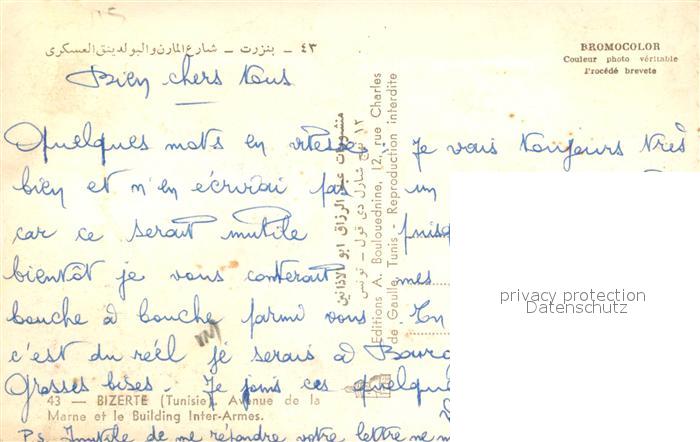 ٤٣ - بنزرت - شارع المارن والبولدينق العسكرى
BROMOCOLOR
Couleur photo véritable
Procédé breveté
Bien chers tous
Quelques mots en vitesse. Je vais toujours très
bien et n'en écrivai pas un
car ce serait inutile puisq
bientôt je vous conterait mes
bouche à bouche parmi vous. En
c'est du réel je serais à Bourg
Grosses bises. Je joins ces quelque
43 — BIZERTE (Tunisie). Avenue de la
Marne et le Building Inter-Armes.
P.S. Inutile de me répondre votre lettre ne m
منشورات عبد الرزاق ابو الاذانين
١٢ نهج شارل دى قول - تونس
Editions A. Boulouednine, 12, rue Charles
de Gaulle, Tunis - Reproduction interdite
privacy protection
Datenschutz